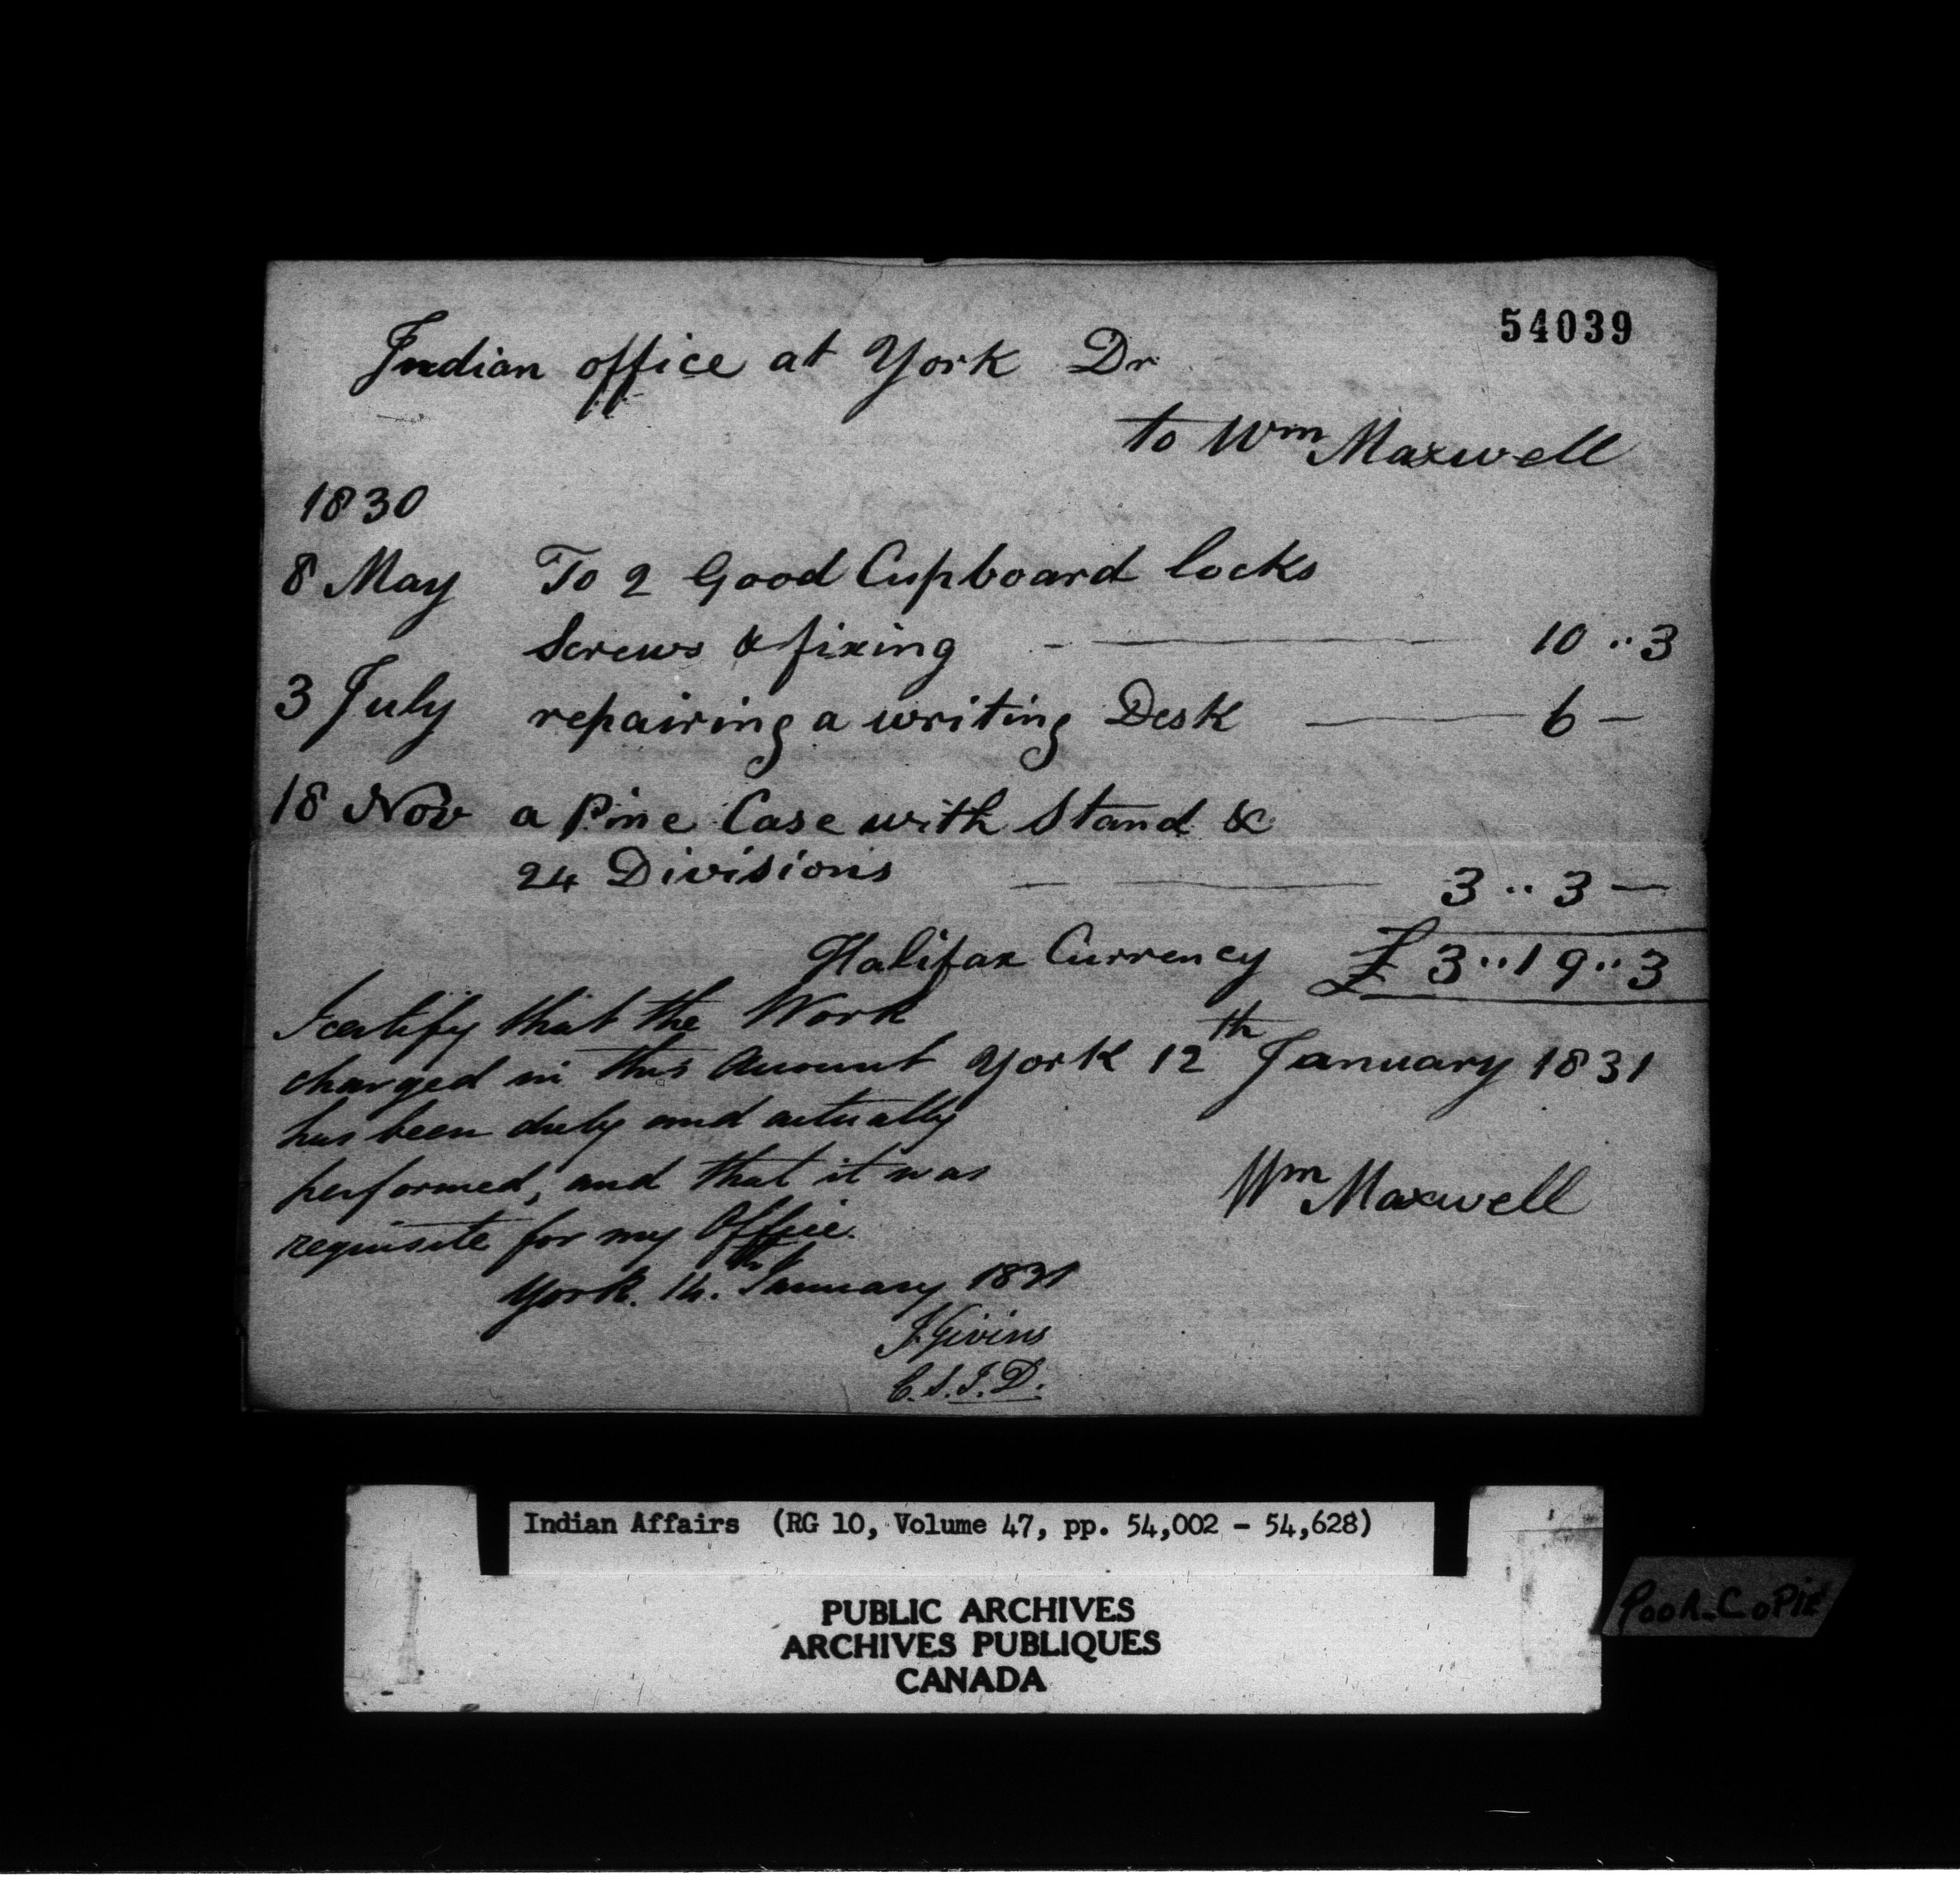 54039
Indian office at York Dr
to Wm Maxwell
1830
8 May To 2 Good Cupboard locks
Screws & fixing - — 10 ·· 3
3 July repairing a writing Desk — 6 —
18 Nov a Pine Case with Stand &
24 Divisions — — 3 ·· 3 —
Halifax Currency £ 3 ·· 19 ·· 3
I certify that the Work
charged in this Account
has been duly and actually
performed, and that it was
requisite for my Office.
York. 14th January 1831
J Givins
C.S.I.D.
York 12th January 1831
Wm Maxwell
Indian Affairs (RG 10, Volume 47, pp. 54,002 - 54,628)
PUBLIC ARCHIVES
ARCHIVES PUBLIQUES
CANADA
Poor-CoPie